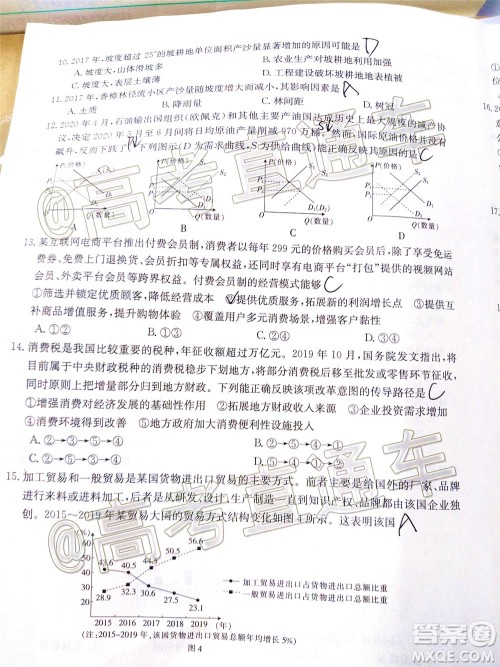 10. 2017年，坡度超过25°的坡耕地单位面积产沙量显著增加的原因可能是 D
A. 坡度大，山体滑坡 B. 农业生产对坡耕地利用加强
C. 表层土壤薄 D. 工程建设破坏坡耕地地表植被
11. 2017年，香樟林径流小区产沙量随坡度增大而减小，其影响因素是
A. 土质 B. 降雨量 C. 林间距 D. 树冠
12. 2020年4月，石油输出国组织（欧佩克）和其他主要产油国达成历史上最大规模的减产协
议，决定2020年5月至6月间将日均原油产量削减970万桶。然而，国际原油价格并没有
飙升，反而下跌了。下列图示（D为需求曲线，S为供给曲线）能正确反映其原因的是 C
P(价格) P(价格) P(价格) P(价格)
Q(数量) Q(数量) Q(数量) Q(数量)
A B C D
13. 某互联网电商平台推出付费会员制，消费者以每年299元的价格购买会员后，除了享受免运
费券、免费上门退换货、会员折扣等专属权益，还可享有电商平台“打包”提供的视频网站
会员、外卖会员、跨界购物等专属权益。付费会员制的经营模式能够 C
①筛选并锁定优质顾客，降低经营成本 ②提供优质服务，拓展新的利润增长点 ③提供互
补商品增值服务，提升购物体验 ④发展会员经济，扩大优质服务供给
A. ①③ B. ①④ C. ②③ D. ②④
14. 消费税是我国比较重要的税种，年征收额超过万亿元。2019年10月，国务院发文指出，将
目前属于中央财政税种的消费税稳步下划到地方，并将征收环节后移至批发或零售环节征
收，同时原则上将增量部分归到地方财政。下列能正确反映该项改革意图的传导路径是 C
①增强消费对经济发展的基础性作用 ②拓展地方财政收入来源 ③企业投资需求增加
④消费环境得到改善 ⑤地方政府加大消费便利性设施投入
A. ②→③→⑤→④ B. ②→③→⑤→①
C. ②→⑤→④→① D. ③→②→⑤→④
15. 加工贸易和一般贸易是某国货物进出口贸易的主要方式。前者指一国使用他国的品牌，
进行来料和来样加工生产，后者是从研发、设计、生产制造一直到知识产权、品牌都由该国企业独
创。2015～2019年某贸易大国的贸易方式结构变化如图4所示。这表明该国 A
(%)
60
50
40
30
20
43.6 44.2 50.5 56.6
28.9 32.1 34.5
2015 2016 2017 2018 2019 (年)
加工贸易进出口占货物进出口总额比重
一般贸易进出口占货物进出口总额比重
(注：2015~2019年，该国货物进出口贸易总额年均增长5%)
图4
@高考直通车
@高考直通车
答案圈